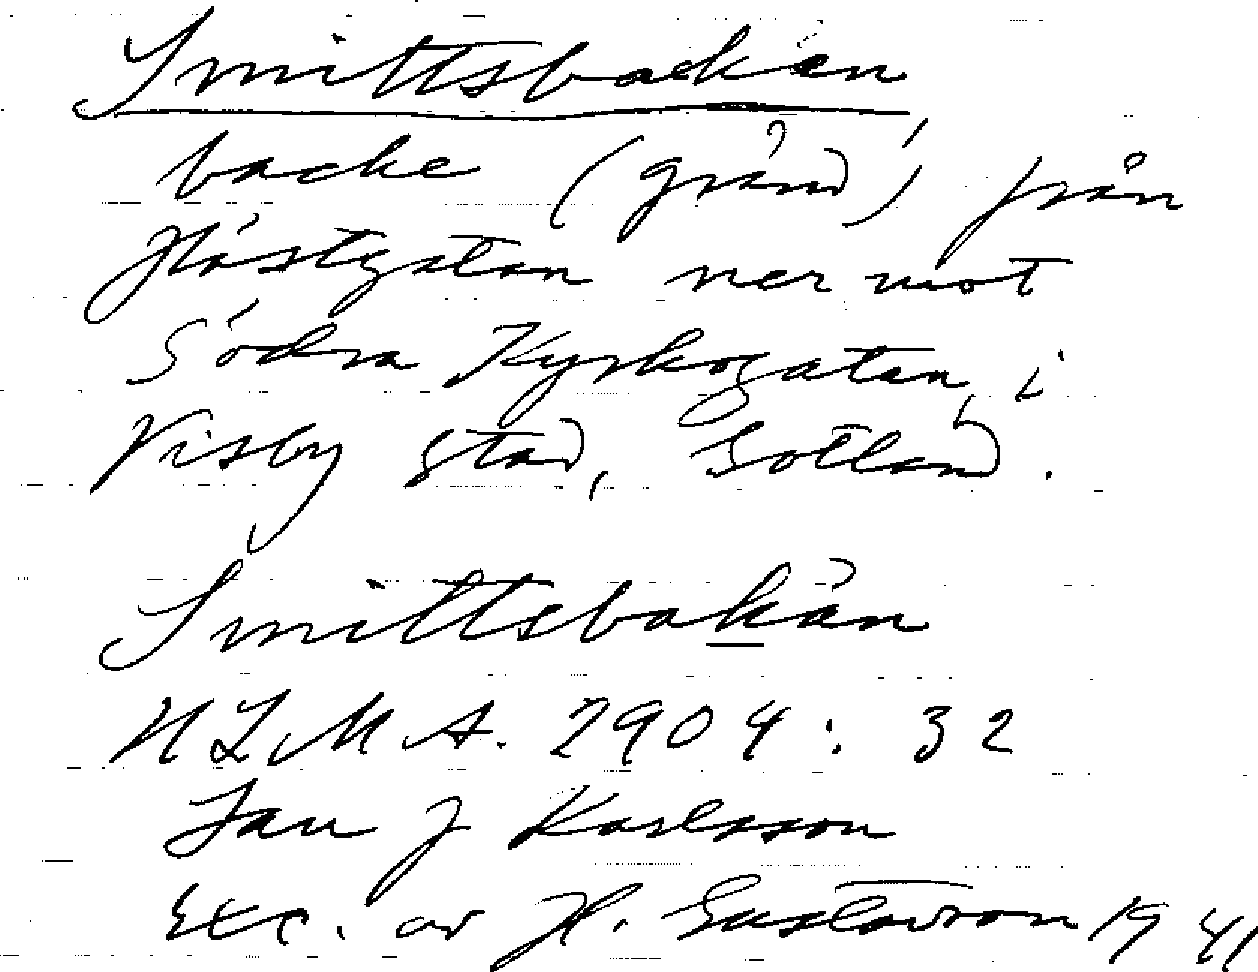 Smittsbacken
backe (gränd) från
Hästgatan ner mot
Södra Kyrkogatan, i
Visby stad, Gotland.
Smittsbakän
NLMA. 2904: 32
Jan J Karlsson
Exc. av H. Gustavson 1941